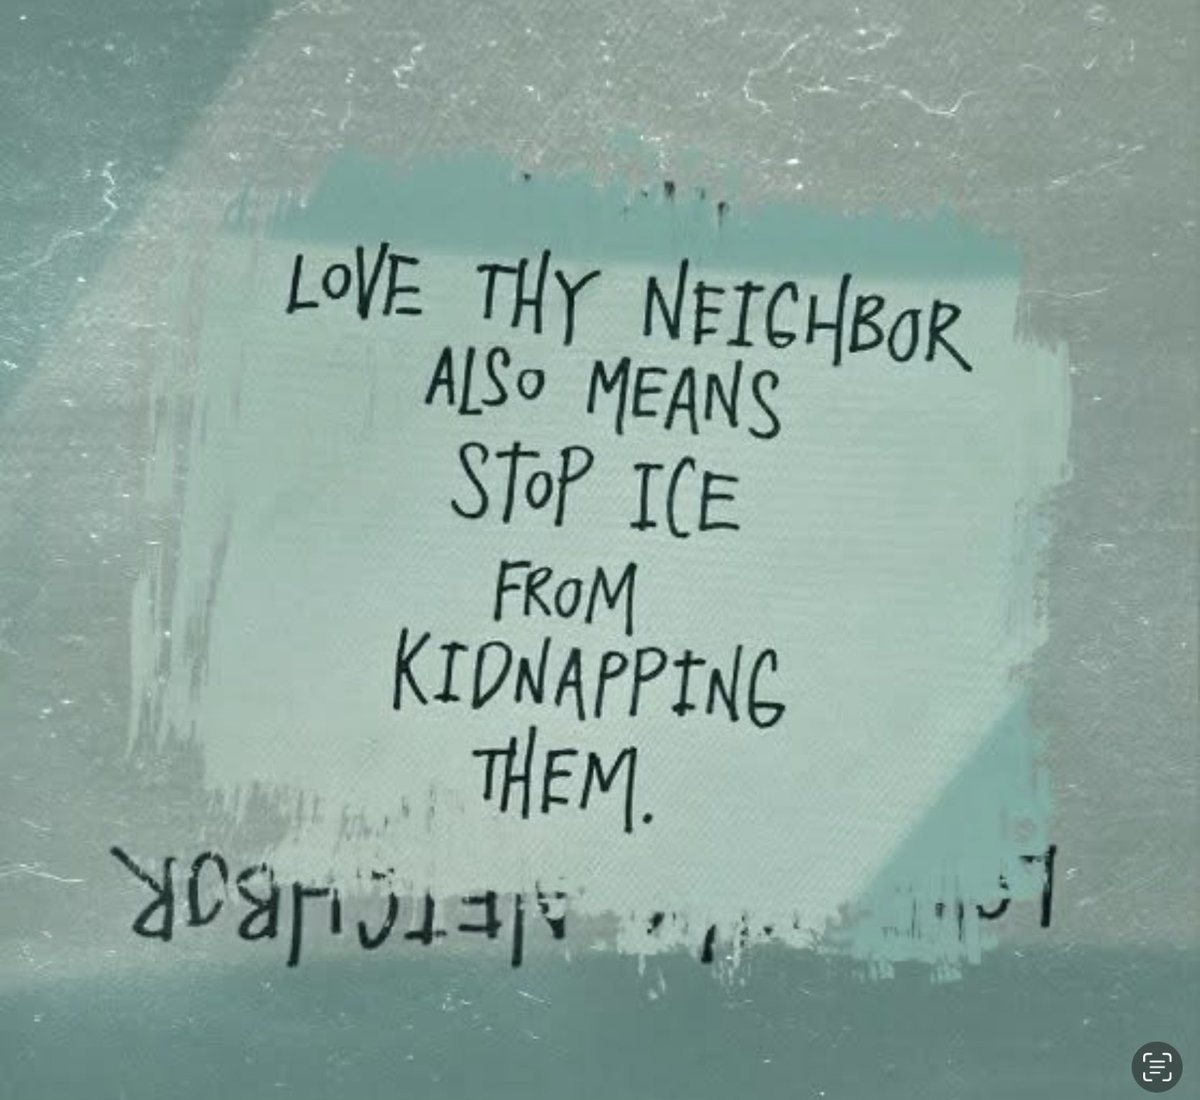 LOVE THY NEIGHBOR
ALSO MEANS
STOP ICE
FROM
KIDNAPPING
THEM.